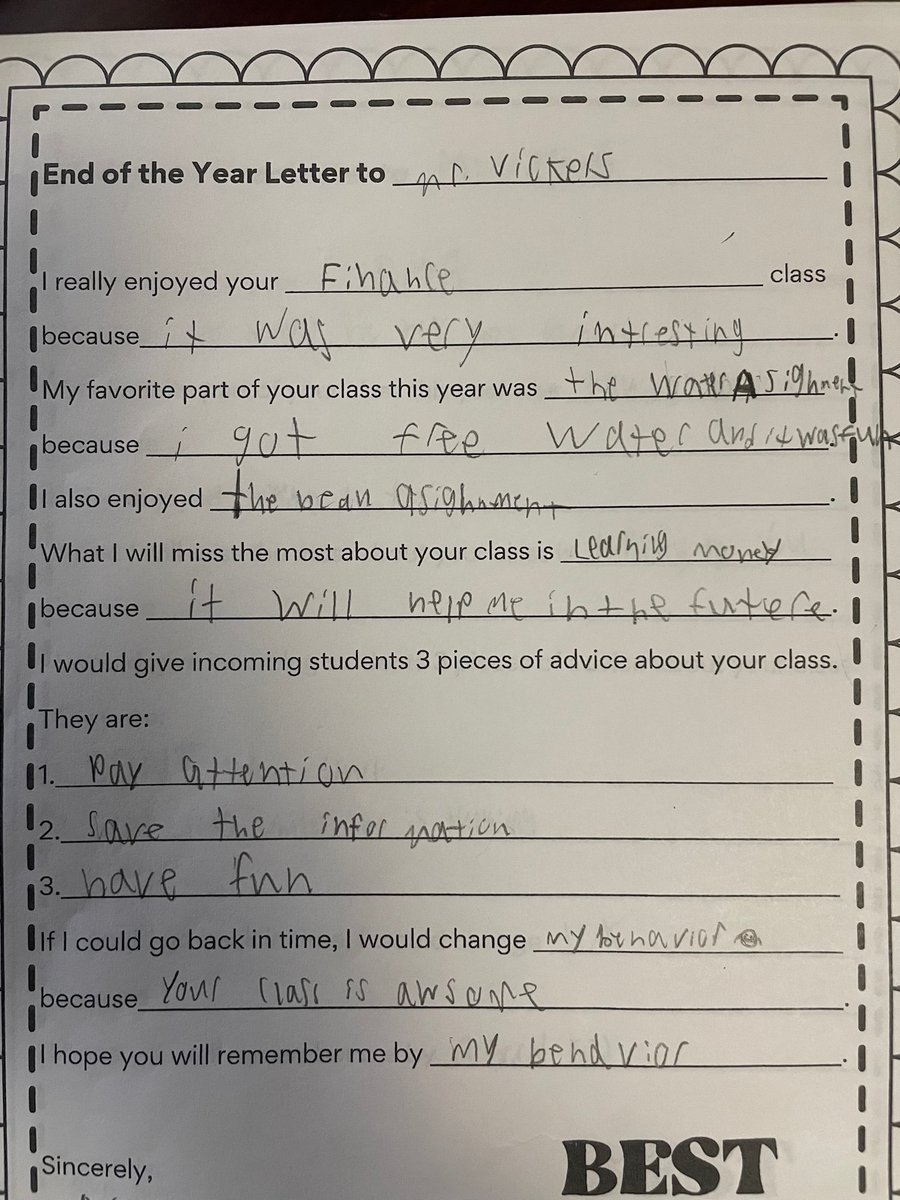 End of the Year Letter to mr. Vickers
I really enjoyed your Finance class
because it was very intresting.
My favorite part of your class this year was the water Asighment
because i got free water and it was fun
I also enjoyed the bean asighnment.
What I will miss the most about your class is Learning money
because it will help me in the futere.
I would give incoming students 3 pieces of advice about your class.
They are:
1. pay attention
2. save the information
3. have fun
If I could go back in time, I would change my behavior
because your class is awsome.
I hope you will remember me by my behavior.
Sincerely,
BEST